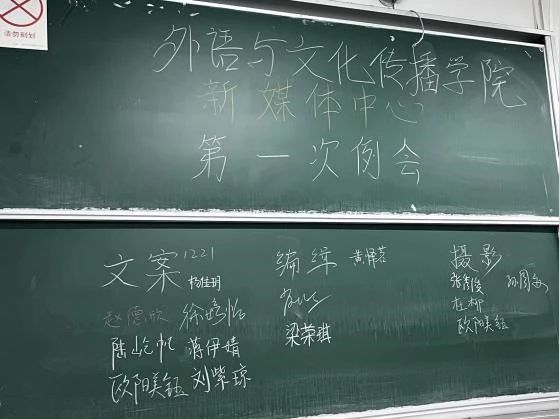 请勿刻划
外语与文化传播学院
新媒体中心
第一次例会
文案 1221 杨佳玥
赵德欣 徐婷怡
陆屹帆 蒋伊婧
欧阳美钰 刘紫琼
编绎 黄择茗
梁荣琪
摄影
杜柳
欧阳美钰